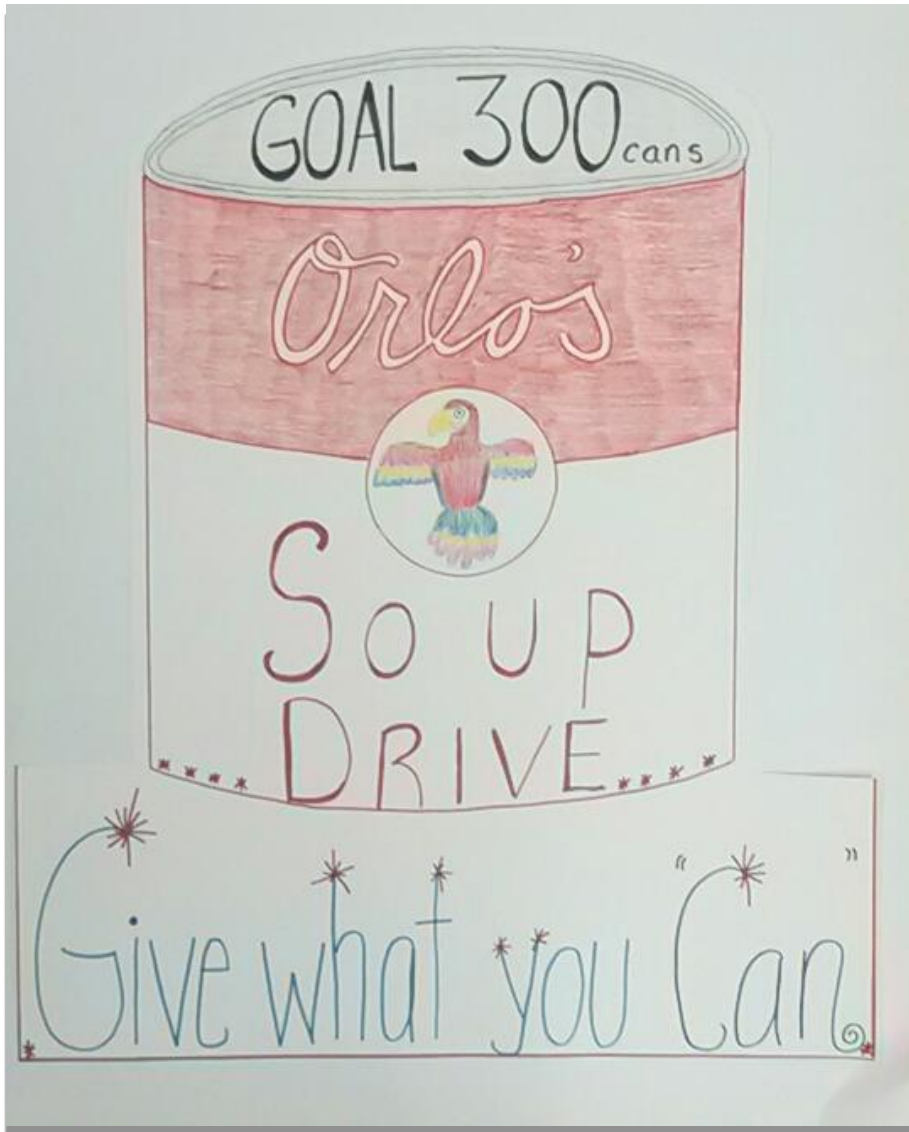 GOAL 300 cans
Orlo's
Soup
DRIVE
Give what you "Can"